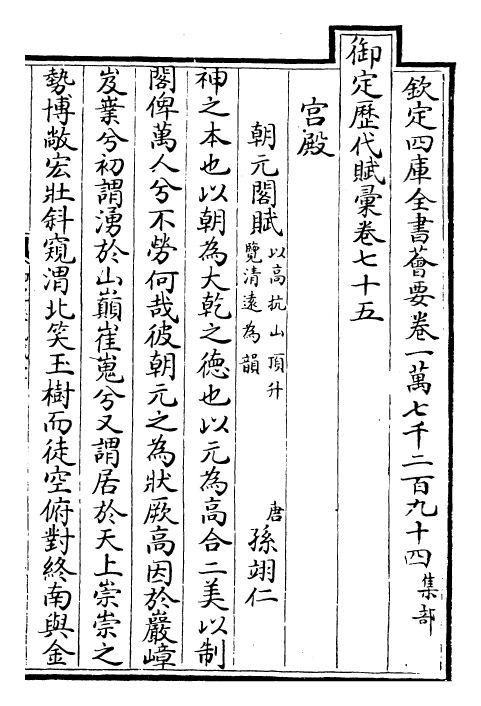 欽定四庫全書薈要卷一萬七千二百九十四 集部
御定歷代賦彙卷七十五
宮殿
朝元閣賦 以高抗山頂升覽清遠為韻 唐 孫翊仁
神之本也以朝為大乾之德也以元為高合二美以制
閣俾萬人兮不勞何哉彼朝元之為狀厥高因於巖嶂
岌業兮初謂湧於山巔崔嵬兮又謂居於天上崇崇之
勢博敞宏壯斜窺渭北笑玉樹而徒空俯對終南與金